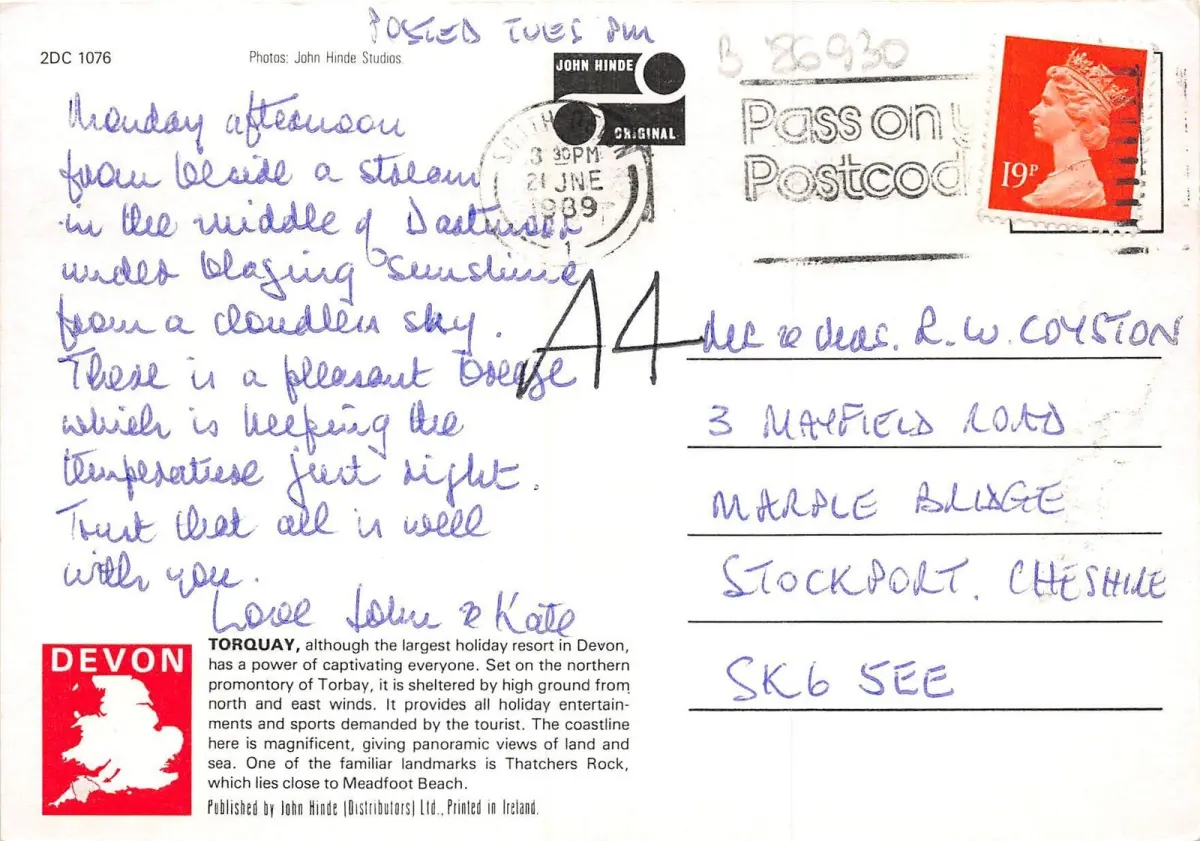 POSTED TUES PM
2DC 1076
Photos: John Hinde Studios.
JOHN HINDE
ORIGINAL
B 86930
Monday afternoon
from beside a stream
in the middle of Dartmoor
under blazing sunshine
from a cloudless sky.
There is a pleasant breeze
which is keeping the
temperature just right.
Trust that all is well
with you.
Love John & Kate
SOUTH
3 30PM
21 JNE
1989
1
Pass on y
Postcod
19P
A4
& R.W. COYSTON
3 MAYFIELD ROAD
MARPLE BRIDGE
STOCKPORT. CHESHIRE
SK6 5EE
DEVON
TORQUAY, although the largest holiday resort in Devon,
has a power of captivating everyone. Set on the northern
promontory of Torbay, it is sheltered by high ground from
north and east winds. It provides all holiday entertain-
ments and sports demanded by the tourist. The coastline
here is magnificent, giving panoramic views of land and
sea. One of the familiar landmarks is Thatchers Rock,
which lies close to Meadfoot Beach.
Published by John Hinde (Distributors) Ltd., Printed in Ireland.